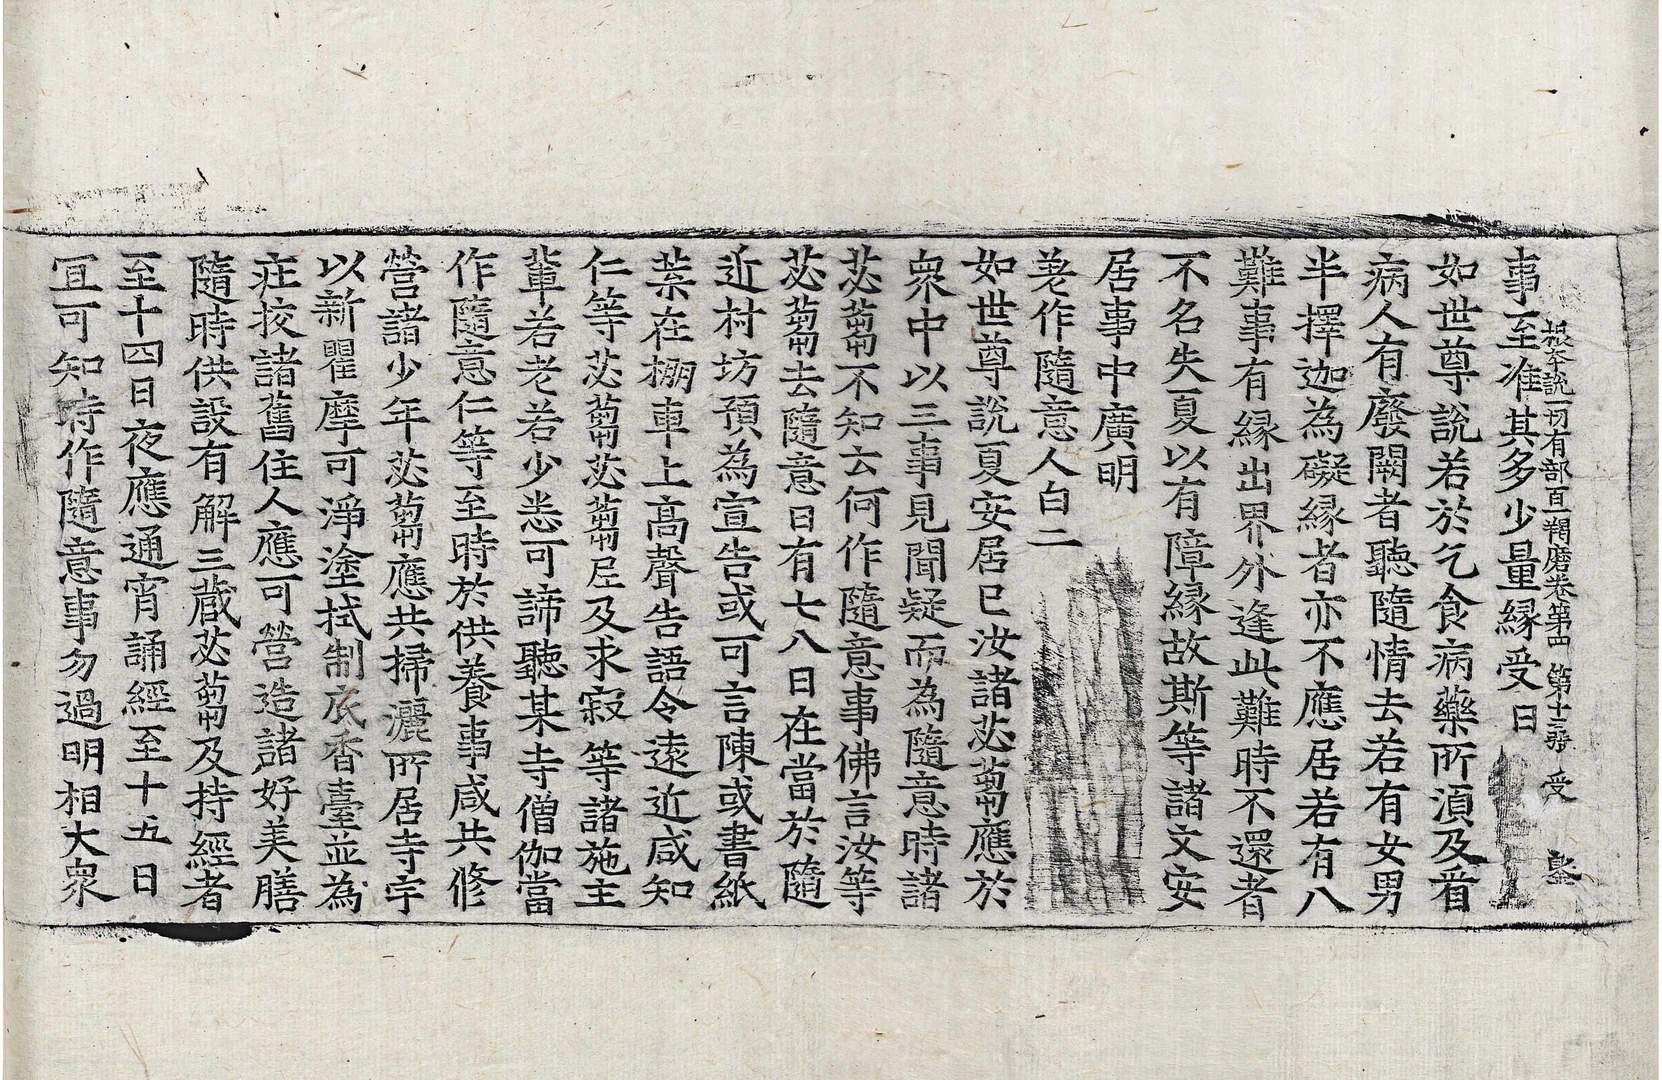 根夲說一切有部百一羯磨卷第四 第十三張 受
事至准其多少量縁受日
如世尊說若於乞食病藥所湏及看
病人有廢闕者聽隨情去若有女男
半擇迦為礙縁者亦不應居若有八
難事有縁出界外逢此難時不還者
不名失夏以有障縁故斯等諸文安
居事中廣明
差作隨意人白二
如世尊說夏安居已汝諸苾蒭應於
衆中以三事見聞疑而為隨意時諸
苾蒭不知云何作隨意事佛言汝等
苾蒭去隨意日有七八日在當於隨
近村坊預為宣告或可言陳或書紙
葉在棚車上高聲告語令遠近咸知
仁等苾蒭苾蒭尼及求寂等諸施主
輩若老若少悉可諦聽某寺僧伽當
作隨意仁等至時於供養事咸共修
營諸少年苾蒭應共掃灑所居寺宇
以新瞿摩可淨塗拭制底香臺並為
莊挍諸舊住人應可營造諸好美膳
隨時供設有解三藏苾蒭及持經者
至十四日夜應通宵誦經至十五日
冝可知時作隨意事勿過明相大衆